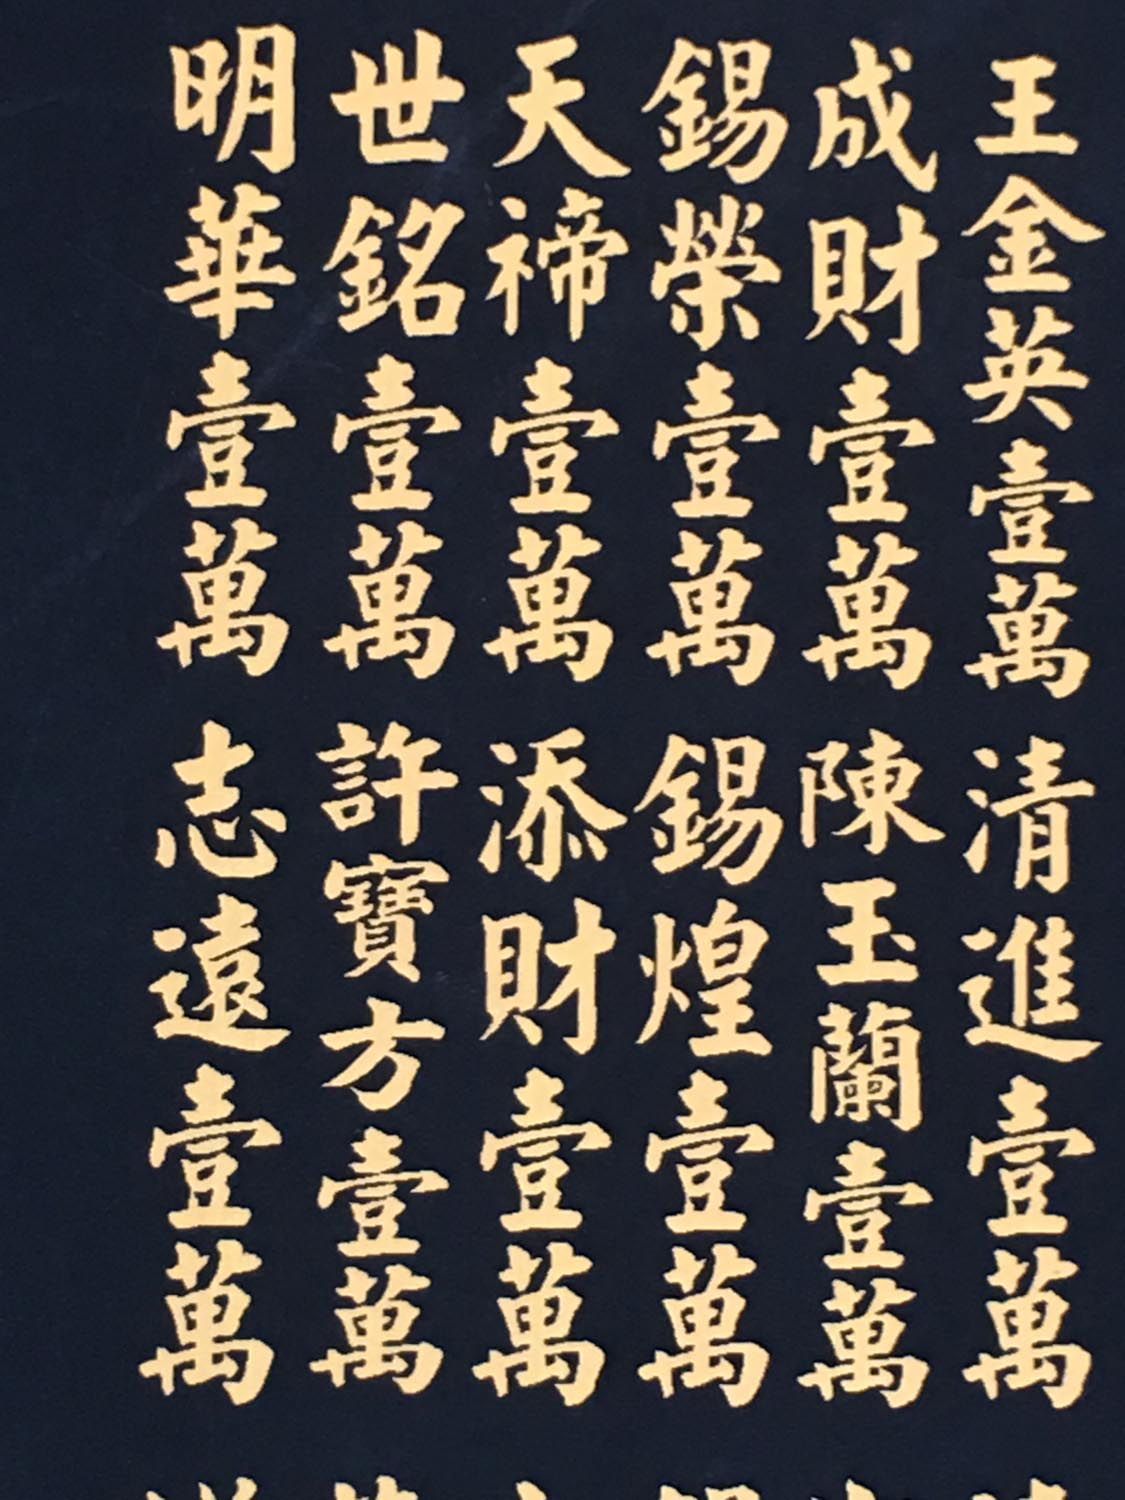 王金英壹萬 清進壹萬
成財壹萬 陳玉蘭壹萬
錫榮壹萬 錫煌壹萬
天禘壹萬 添財壹萬
世銘壹萬 許寶方壹萬
明華壹萬 志遠壹萬